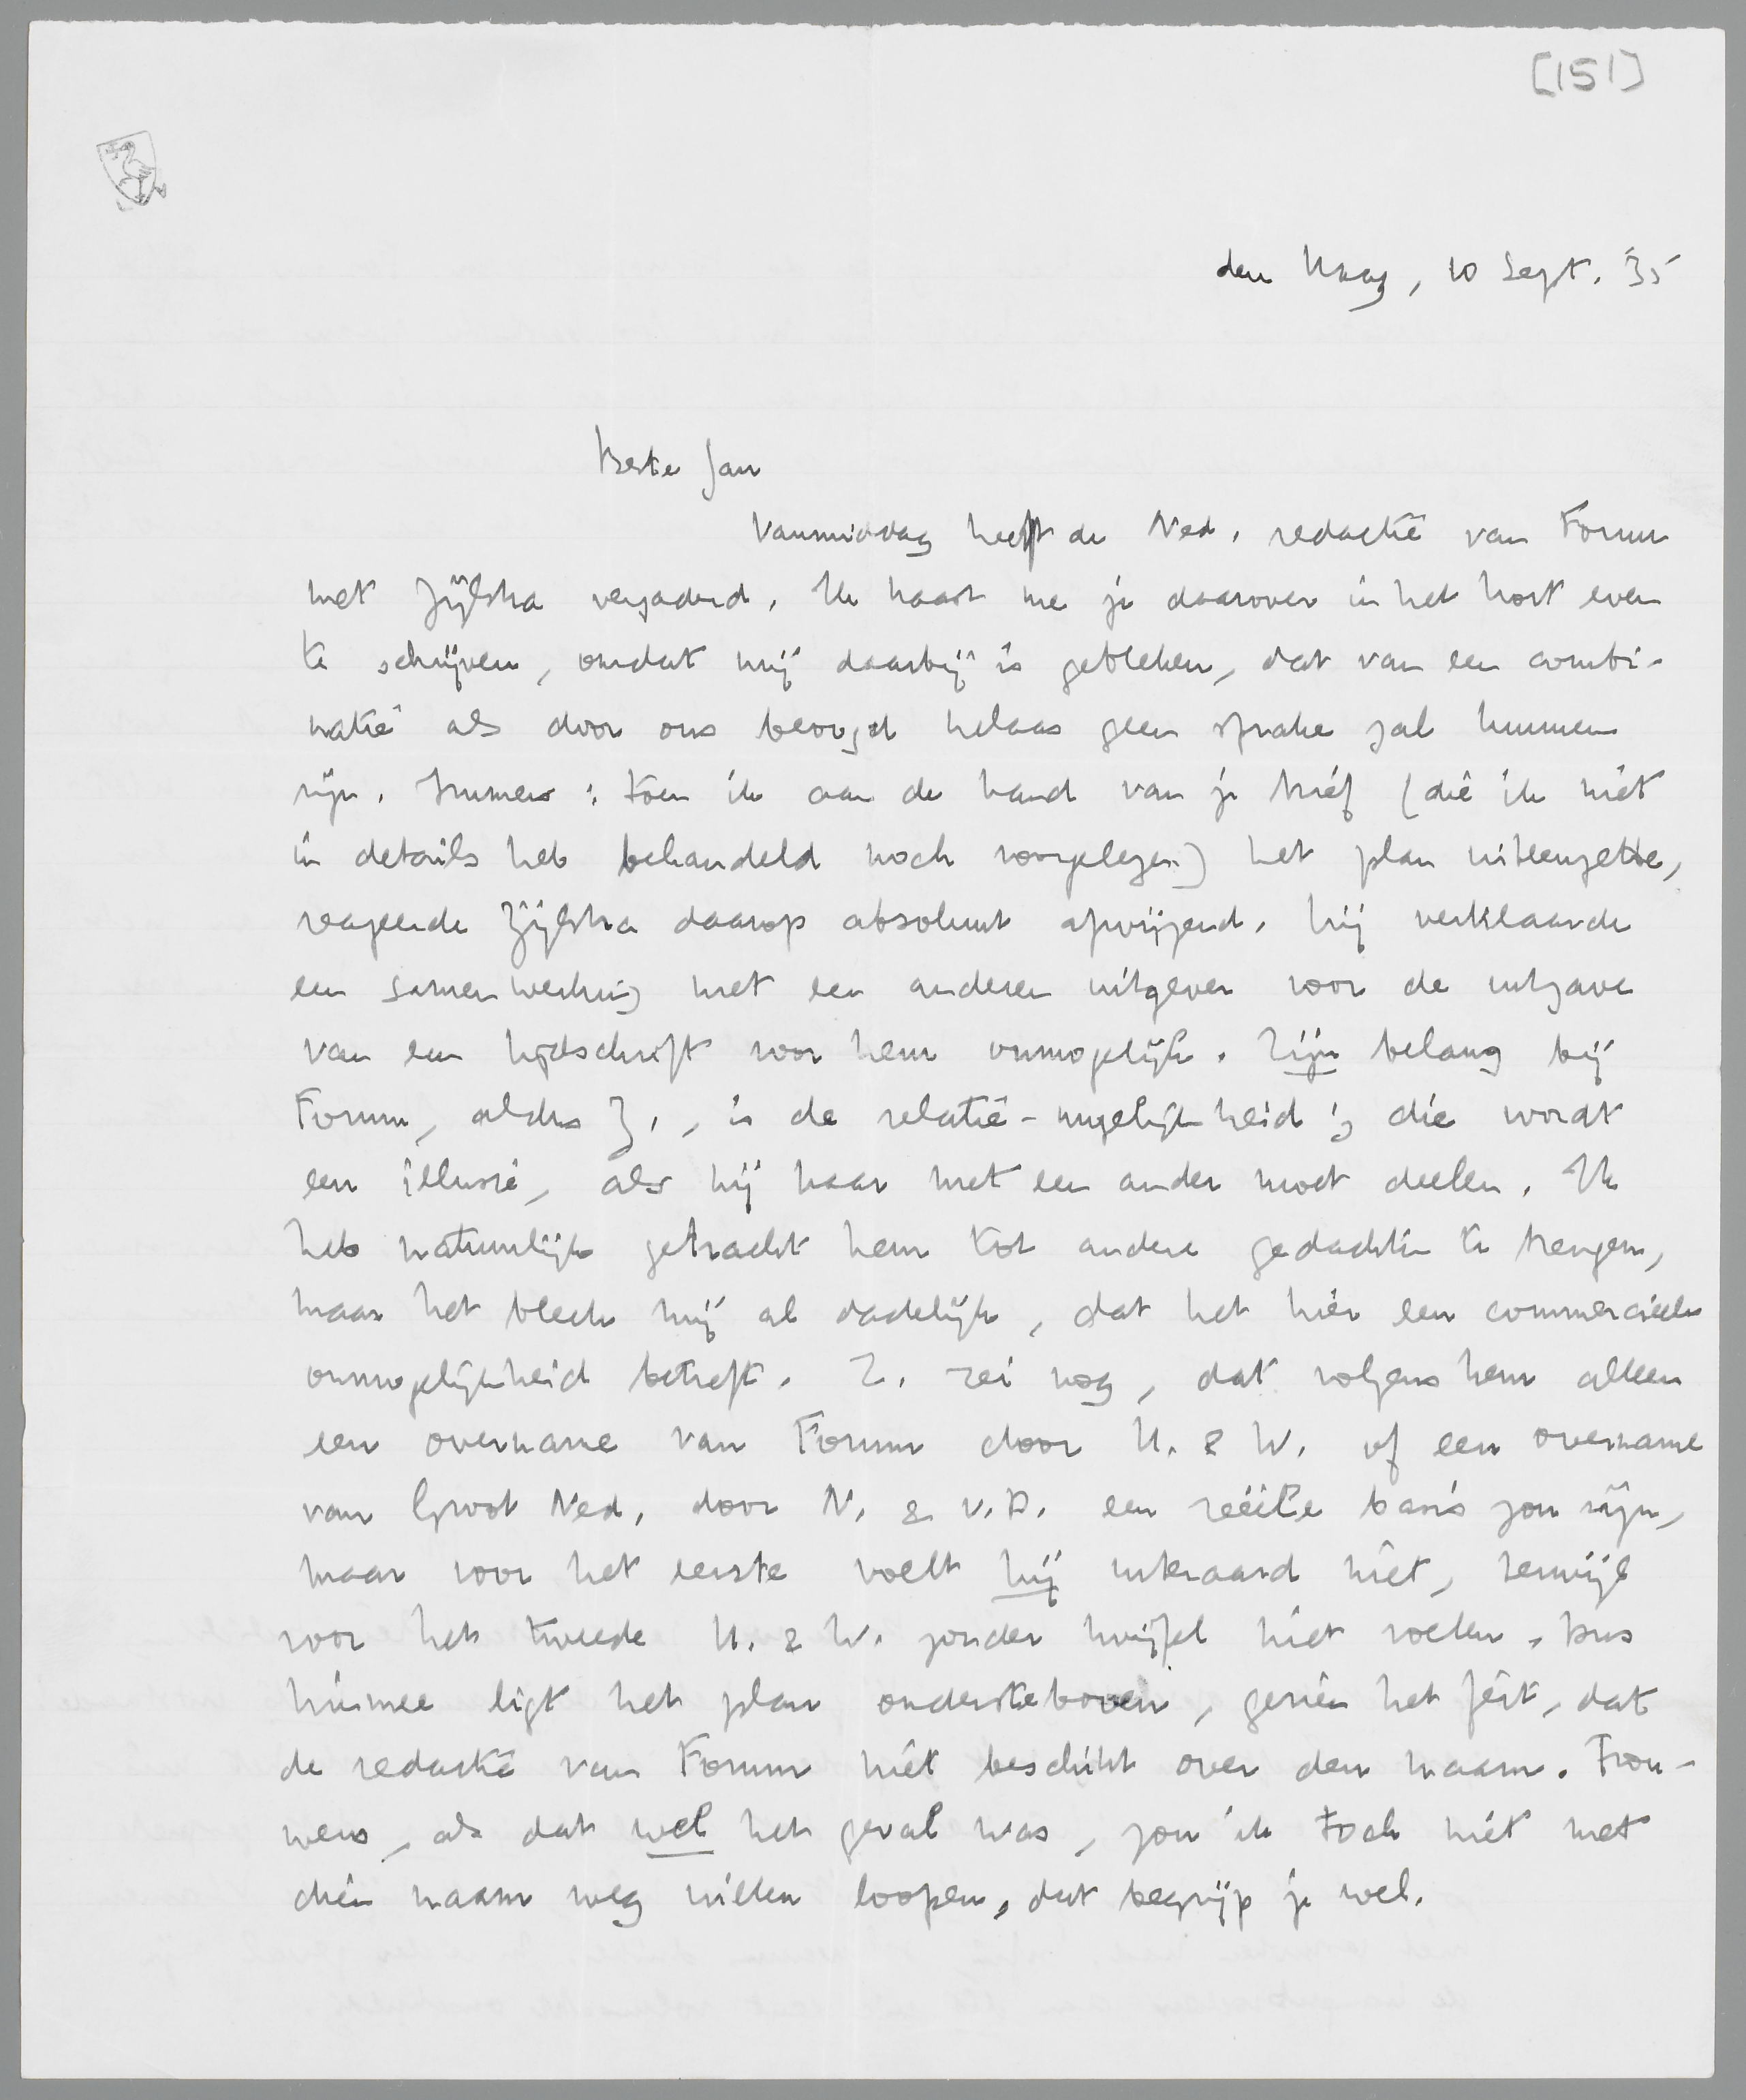 [151]
den Haag, 10 Sept. '35
Beste Jan
Vanmiddag heeft de Ned. redactie van Forum
met Zijlstra vergaderd. Ik haast me je daarover in het kort even
te schrijven, omdat mij daarbij is gebleken, dat van een combi-
natie als door ons beoogd helaas geen sprake zal kunnen
zijn. Immers: toen ik aan de hand van je brief (die ik niet
in details heb behandeld noch voorgelezen) het plan uiteenzette,
reageerde Zijlstra daarop absoluut afwijzend. Hij verklaarde
een samenwerking met een anderen uitgever voor de uitgave
van een tijdschrift voor hem onmogelijk. Zijn belang bij
Forum, aldus Z., is de relatie-mogelijkheid; die wordt
een illusie, als hij haar met een ander moet deelen. Ik
heb natuurlijk getracht hem tot andere gedachten te brengen,
maar het bleek mij al dadelijk, dat het hier een commercieele
onmogelijkheid betreft. Z. zei nog, dat volgens hem alleen
een overname van Forum door H. & W. of een overname
van Groot Ned. door N. & v.D. een reëele basis zou zijn,
maar voor het eerste voelt hij uiteraard niet, terwijl
voor het tweede H. & W. zonder twijfel niet voelen. Dus
hiermee ligt het plan ondersteboven, gezien het feit, dat
de redactie van Forum niet beschikt over den naam. Trou-
wens, als dat wel het geval was, zou ik toch niet met
dien naam weg willen loopen, dat begrijp je wel.